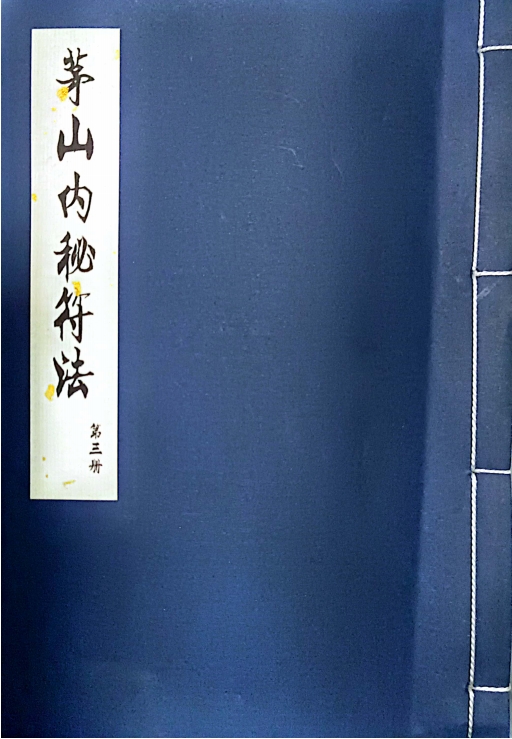 茅山内秘符法
第三册